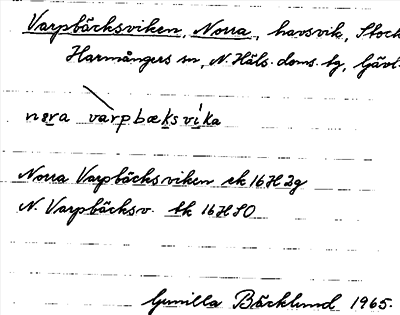 Varpbäcksviken, Norra, havsvik, Stock
Harmångers sn, N. Häls. doms. tg, Gävl.
nora varpbæksvika
Norra Varpbäcksviken ek 16H2g
N. Varpbäcksv. tk 16HSO
Gunilla Bäcklund 1965.